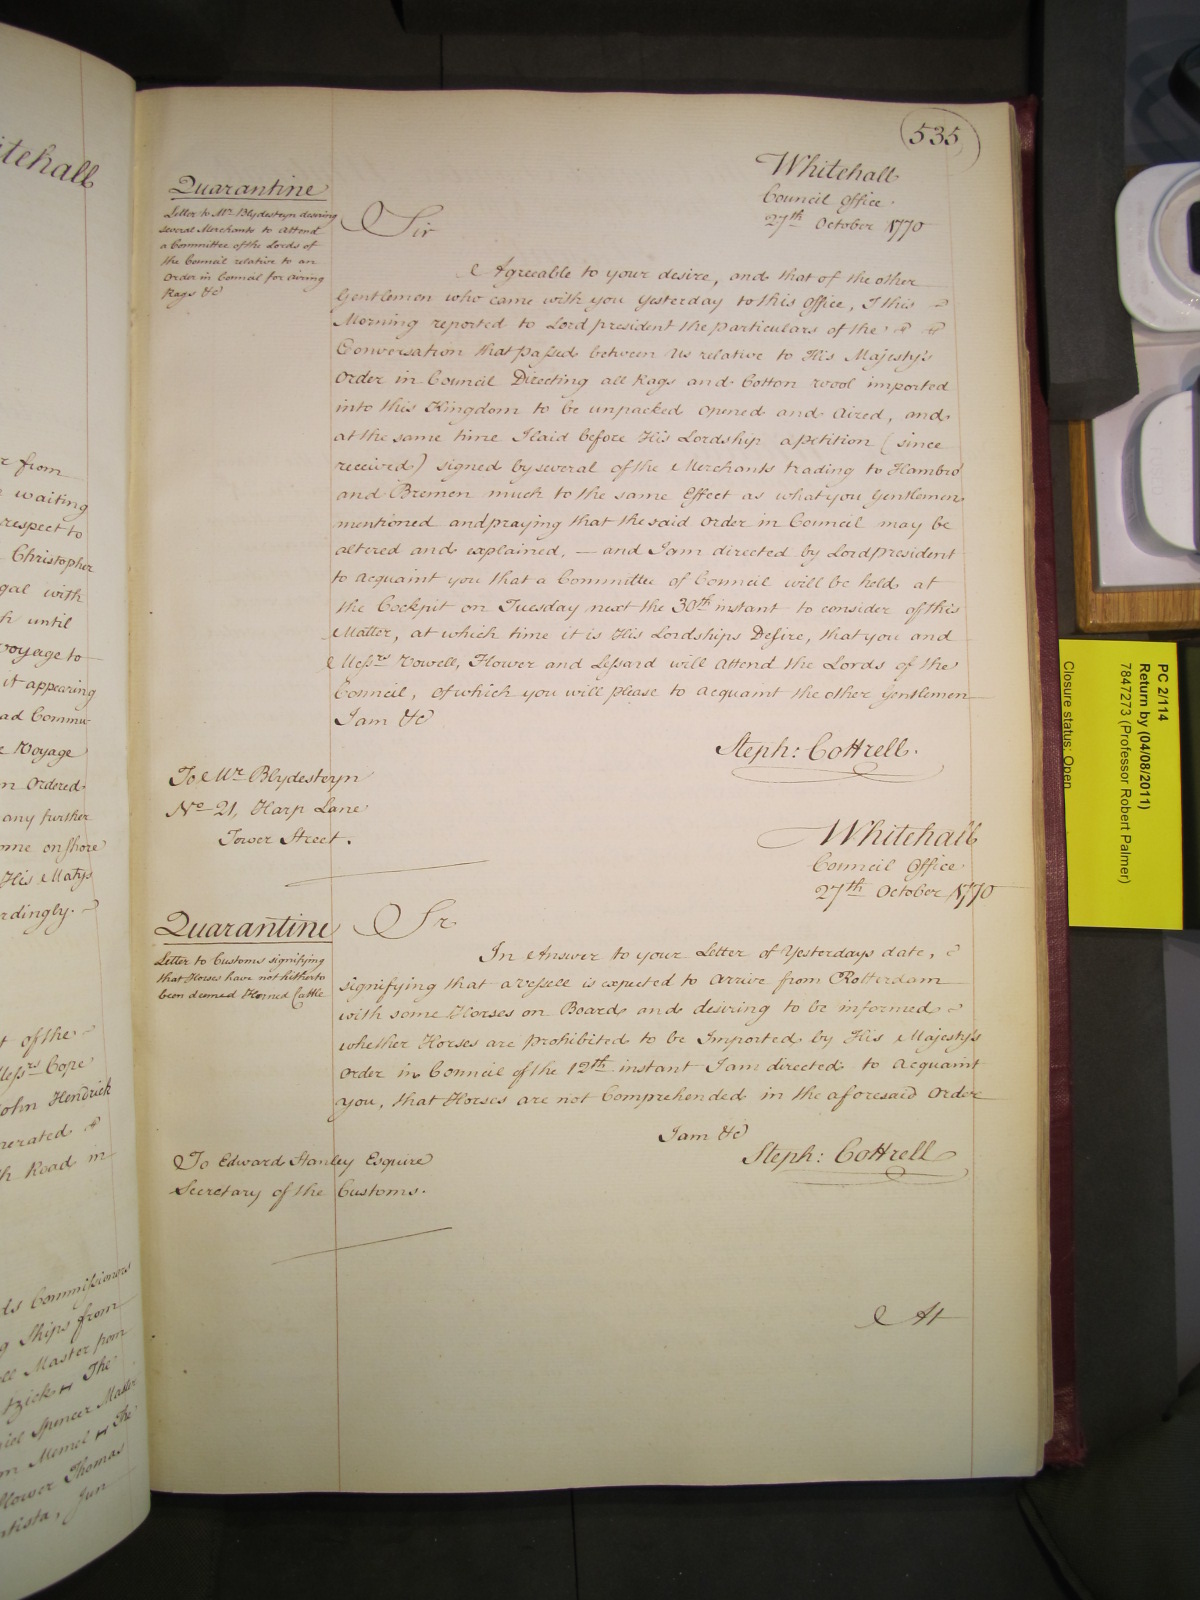 itehall
r from
waiting
respect to
Christopher
gal with
h until
voyage to
it appearing
ad Commu-
Voyage
m Ordered
any further
ome on shore
His Matys
rdingly.
t of the
Messrs Cope
John Hendrick
nerated
th Road in
ds Commissioners
g Ships from
Master from
tzick & The
iel Spencer Master
m Memel & The
Flower Thomas
tista, Jun
535
Whitehall
Council Office
27th October 1770
Quarantine
Letter to Mr Blydesteyn desiring
several Merchants to attend
a Committee of the Lords of
the Council relative to an
Order in Council for airing
Rags &c
Sir
Agreeable to your desire, and that of the other
Gentlemen who came with you yesterday to this Office, I this
Morning reported to Lord president the particulars of the
Conversation that passed between us relative to His Majesty's
Order in Council Directing all Rags and Cotton wool imported
into this Kingdom to be unpacked opened and Aired, and
at the same time I laid before His Lordship a petition (since
received) signed by several of the Merchants trading to Hambro'
and Bremen much to the same Effect as what you Gentlemen
mentioned and praying that the said Order in Council may be
altered and explained, — and I am directed by Lord president
to acquaint you that a Committee of Council will be held at
the Cockpit on Tuesday next the 30th instant to consider of this
Matter, at which time it is His Lordships Desire, that you and
Messrs Vowell, Flower and Lessard will attend the Lords of the
Council, of which you will please to acquaint the other Gentlemen
I am &c
Steph: Cottrell.
To Mr Blydesteyn
No 21, Harp Lane
Tower Street.
Whitehall
Council Office
27th October 1770
Quarantine
Letter to Customs signifying
that Horses have not hitherto
been deemed Horned Cattle
Sr
In Answer to your Letter of Yesterdays date,
signifying that a vessell is expected to arrive from Rotterdam
with some Horses on Board and desiring to be informed
whether Horses are prohibited to be Imported by His Majesty's
Order in Council of the 12th instant I am directed to acquaint
you, that Horses are not Comprehended in the aforesaid Order
I am &c
Steph: Cottrell
To Edward Stanley Esquire
Secretary of the Customs.
At
PC 2/114
Return by (04/08/2011)
7847273 (Professor Robert Palmer)
Closure status: Open